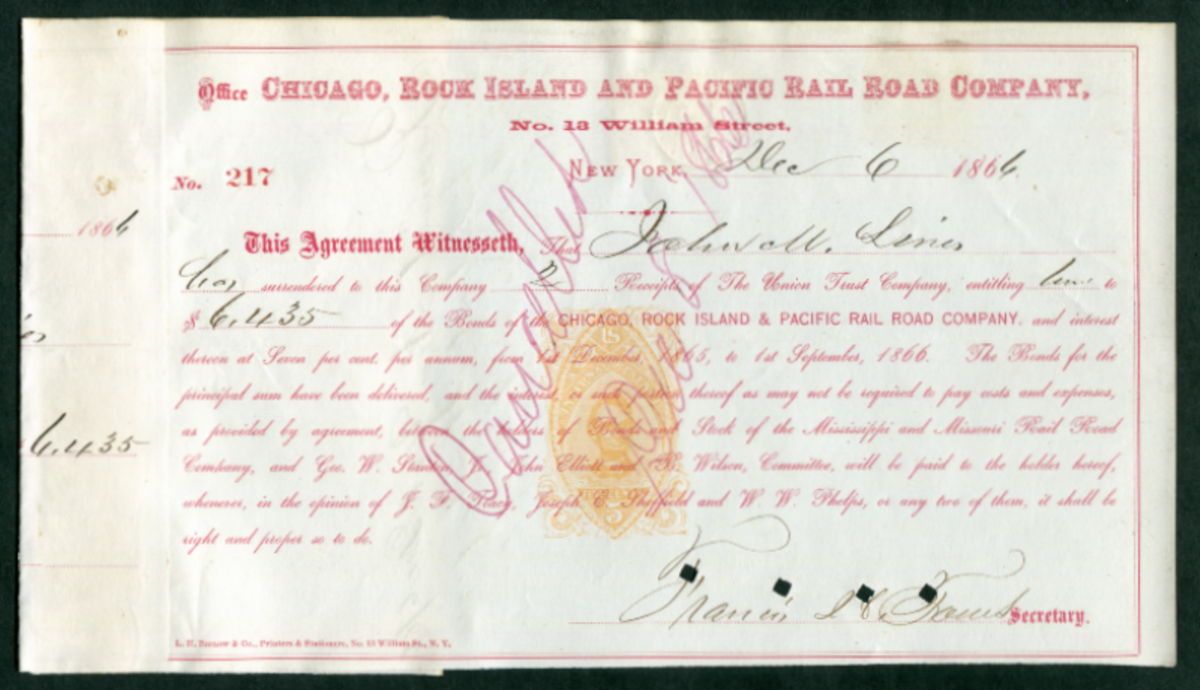 Office CHICAGO, ROCK ISLAND AND PACIFIC RAIL ROAD COMPANY,
No. 13 William Street,
No. 217
NEW YORK, Dec 6 1866
1866
This Agreement Witnesseth, That John M.
has surrendered to this Company 2 Receipts of The Union Trust Company, entitling him to
$ 6,435 of the Bonds of the CHICAGO, ROCK ISLAND & PACIFIC RAIL ROAD COMPANY, and interest
thereon at Seven per cent. per annum, from 1st December, 1865, to 1st September, 1866. The Bonds for the
principal sum have been delivered, and the interest, or such portion thereof as may not be required to pay costs and expenses,
as provided by agreement, between the holders of Bonds and Stock of the Mississippi and Missouri Rail Road
6,435
Company, and Geo. W. John Elliott and Wilson, Committee, will be paid to the holder hereof,
whenever, in the opinion of J. F. Tracy, Joseph E. Sheffield and W. W. Phelps, or any two of them, it shall be
right and proper so to do.
Cancelled
Francis Secretary.
Printers & Stationers, No. 13 William St., N. Y.